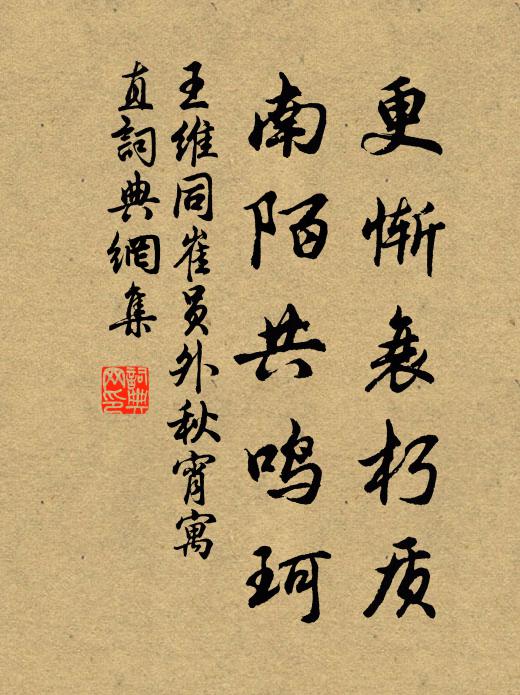 更惭衰朽质
南陌共鸣珂
王維同崔員外秋宵寓
直詞典網集
詞典
网印